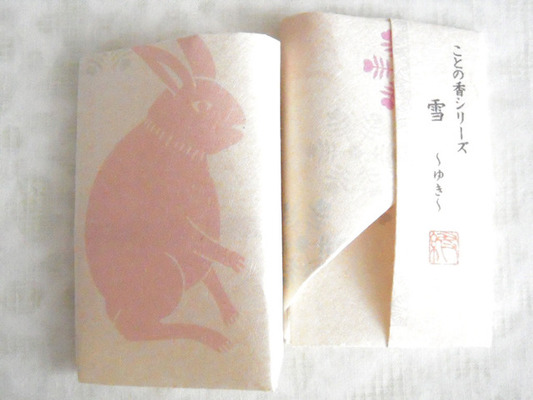 ことの香シリーズ
雪
～ゆき～